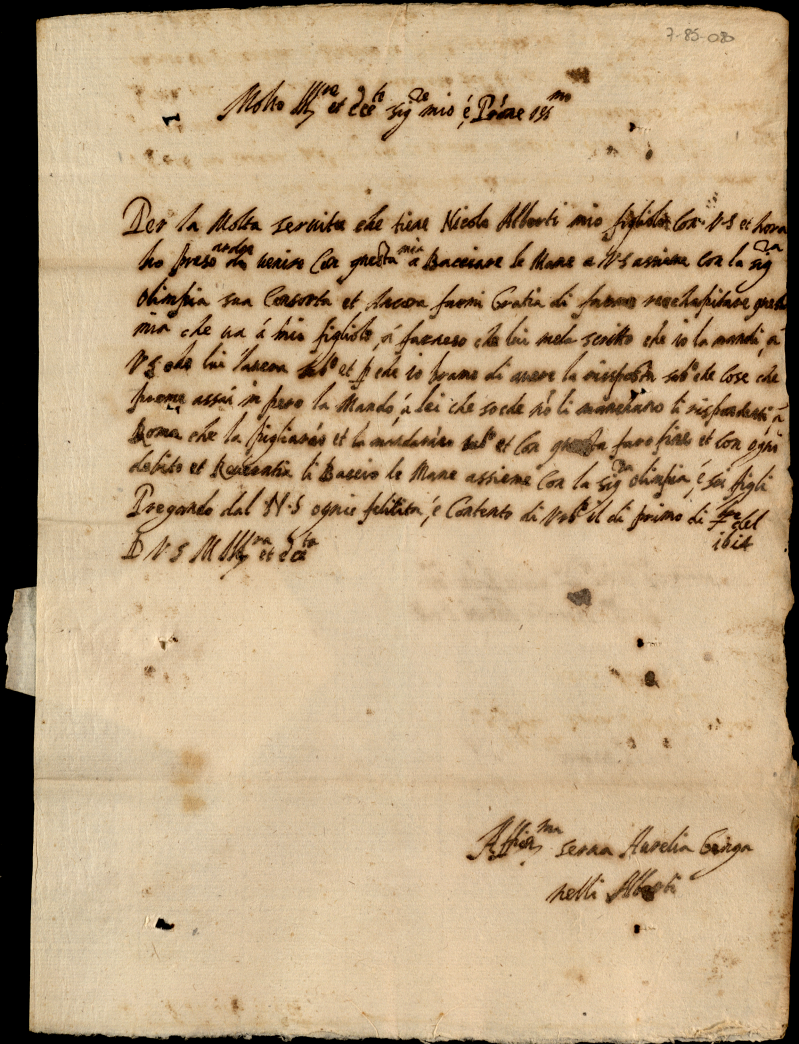 7-85-08
Molto Ill.re et Ecc.te Sig.re mio é Prone oss.mo
Per la Molta servitu che tiene Nicolo Alberti mio figliolo Con V S et hora
ho preso venire Con questa mia a Bacciare le Mane a V S assieme con la sig.ra
olimpia sua Consorta et Ancora farmi Gratia di farme
mia che va á mio figliolo, che lui me la scritto che io la mandi, á
V S che lui et che io bramo di avere la rissposta sub.o che Cose che
assai in pero la Mando, á lei che so che nó li mancharano li á
Roma che la pigliaráno et la mandaráno sub.o et Con questa faro fine et con ogni
debito et Reverentia li Baccio le Mane assieme Con la sig.ra olimpia, é soi figli
Pregando dal N S ognie felitita, é Contento di il di primo di del
1614
D V S M Ill.ra et Ecc.ta
Affon.ma serva Aurelia
nelli Alberti